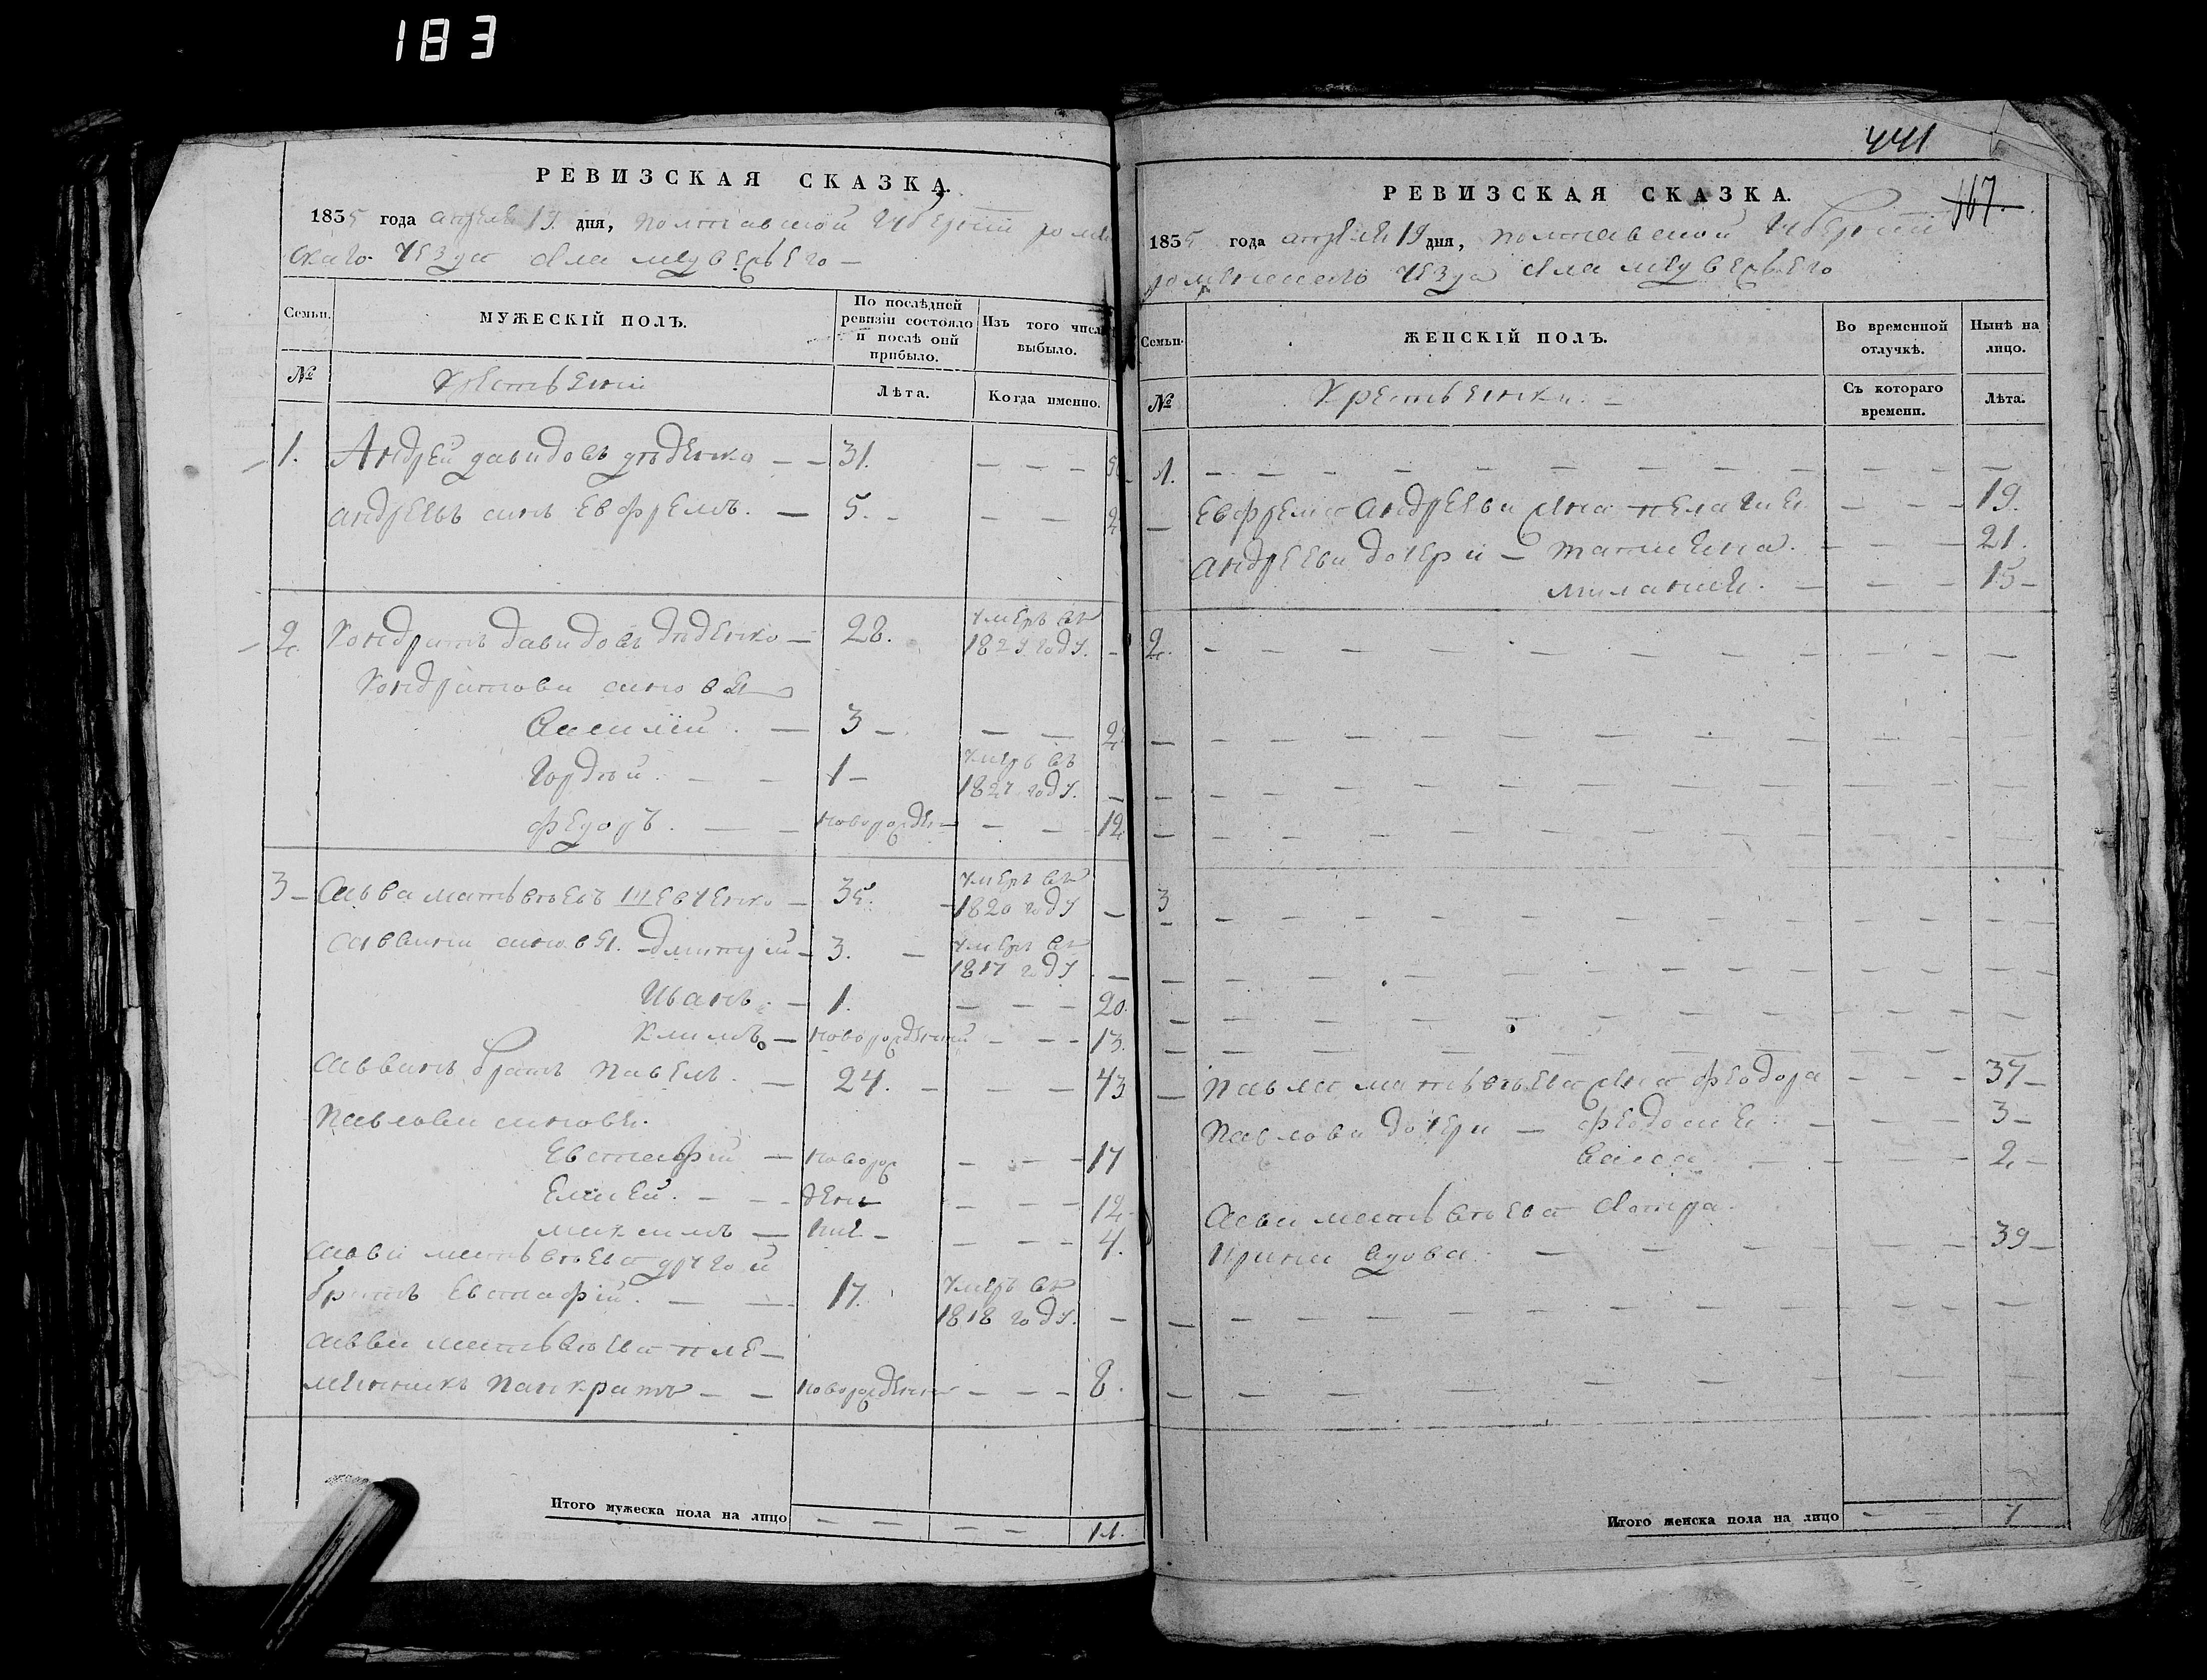 183
РЕВИЗСКАЯ СКАЗКА.
1835 года апреля 19. дня, полтавской губернии ромен
скаго уезда села медвежьего —
Семьи. МУЖЕСКІЙ ПОЛЪ. По послѣдней ревизіи состояло и послѣ оной прибыло. Изъ того числа выбыло.
№ Лѣта. Когда именно.
1. Андрей давидовъ дѣденко — — 31. — — —
андреевъ синъ Евфремъ. — 5. — — —
2. Кондратъ давидовъ дѣденко — 28. умеръ въ 1824 году. —
Кондратови синовя
3 — — —
Гордѣй. — — 1 — умеръ въ 1827 году. —
федоръ. — — новорожден — — 12
3 — Савва матвѣевъ шевченко — 35. умеръ въ 1820 году —
саввини синовя. дмитрій — 3. — умеръ въ 1817 году —
Иванъ. — 1. — — — 20.
климъ — новорожденний — — 13.
саввинъ братъ павелъ. — 24. — — — 43
павлови синовя.
Евстафій — новорож — — — 17
Елисей. — — ден — — — 12
максимъ — ние — — — 4.
савви матвѣева другой
братъ Евстафій. — — 17. умеръ въ 1818 году. —
савви матвѣева пле—
менникъ панкратъ — — новорожден — — — 8.
Итого мужеска пола на лицо — — — — 11.
441
117.
РЕВИЗСКАЯ СКАЗКА.
1835 года апреля 19 дня, полтавской губернии
роменскаго уезда села медвежьего
Семьи. ЖЕНСКІЙ ПОЛЪ. Во временной отлучкѣ. Нынѣ на лицо.
№ Крестьянки. — Съ котораго времени. Лѣта.
1. — — — — —
Евфрема андреева жена пелагия — — — 19.
андрееви дочери — татиена. — — — 21.
милания. — — — — 15 —
2. — — — — —
3 — — — — —
павла матвѣева жена феодора — — — 37 —
павлови дочери — феодосия. — — — 3 —
— — — 2 —
савви матвѣева сестра
ирина вдова. — — — — 39 —
Итого женска пола на лицо — — 7